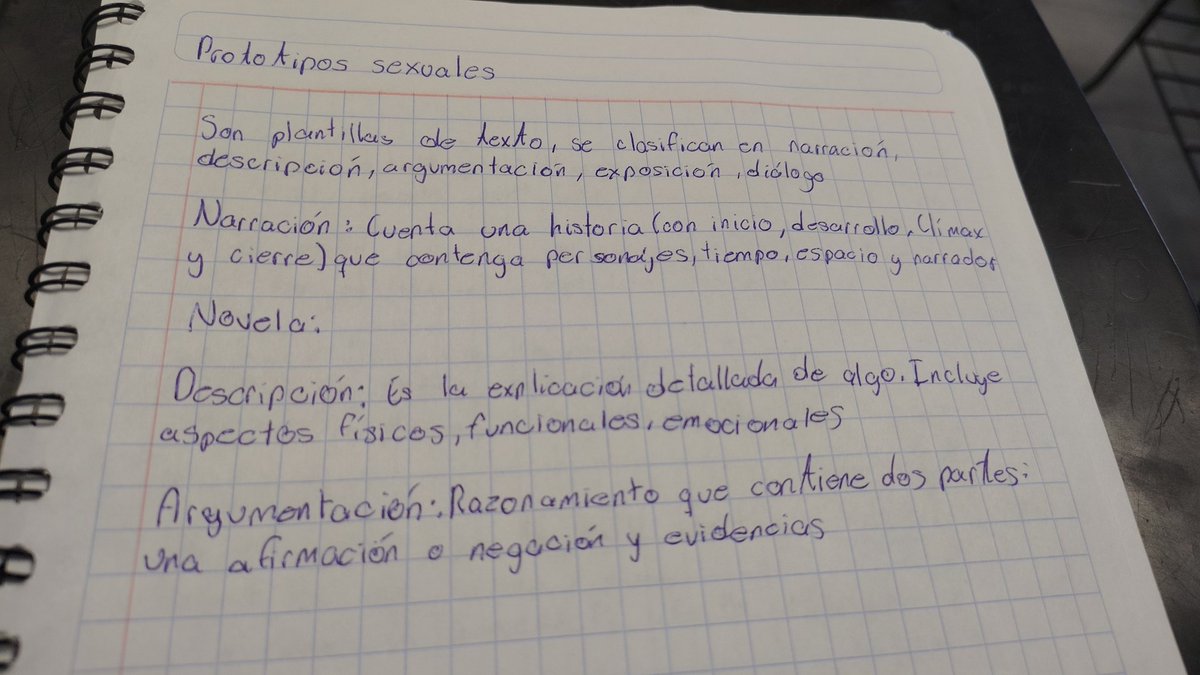 Prototipos sexuales
Son plantillas de texto, se clasifican en narración,
descripción, argumentación, exposición, diálogo
Narración: Cuenta una historia (con inicio, desarrollo, Clímax
y cierre) que contenga personajes, tiempo, espacio y narrador
Novela:
Descripción: Es la explicación detallada de algo. Incluye
aspectos físicos, funcionales, emocionales
Argumentación: Razonamiento que contiene dos partes:
una afirmación o negación y evidencias